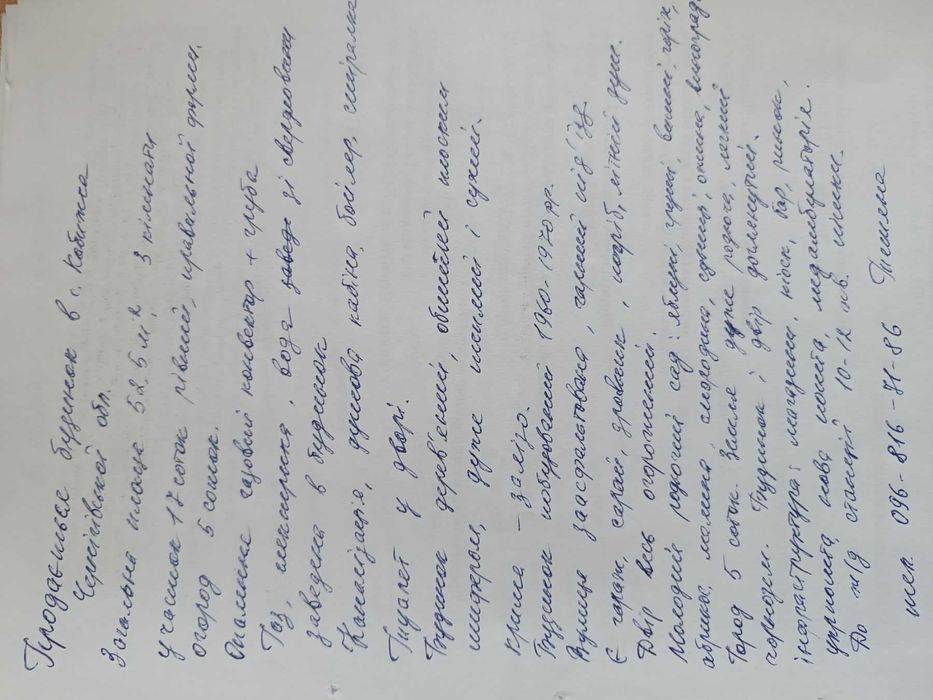 Продається будинок в с. Кобижча
Чернігівської обл.
Загальна площа 58.5 м2, 3 кімнати
участок 17 соток рівний, правильной форми.
огород 5 соток.
Опаленне газовий конвектор + груба
Газ, електрика, вода заведе зі свердловини
заведена в будинок
Каналізація, душова кабіна, бойлер, стіралка
Туалет у дворі.
Будинок дерев'яний, обшитий плоским
шифером, дуже теплий і сухий.
Криша – залізо.
Будинок побудований 1960-1970 рр.
Вулиця заасфальтована, гарний під'їзд
Є гараж, сарай, дровяник, погріб, літній душ.
Двір весь огорожений.
Молодий родючий сад: яблуні, груші, вишні, горіх,
абрикос, малина, смородина, суниці, ожина, виноград
Город 5 соток. Земля дуже родюча, легкий
чорнозем. Будинок і двір доглянутий.
інфраструктура: магазини, кіоск, бар, ринок,
укрпошта, нова пошта, медамбулаторія.
До ж/д станції 10-12 хв. пішки.
тел. 096-816-71-86 Тетяна